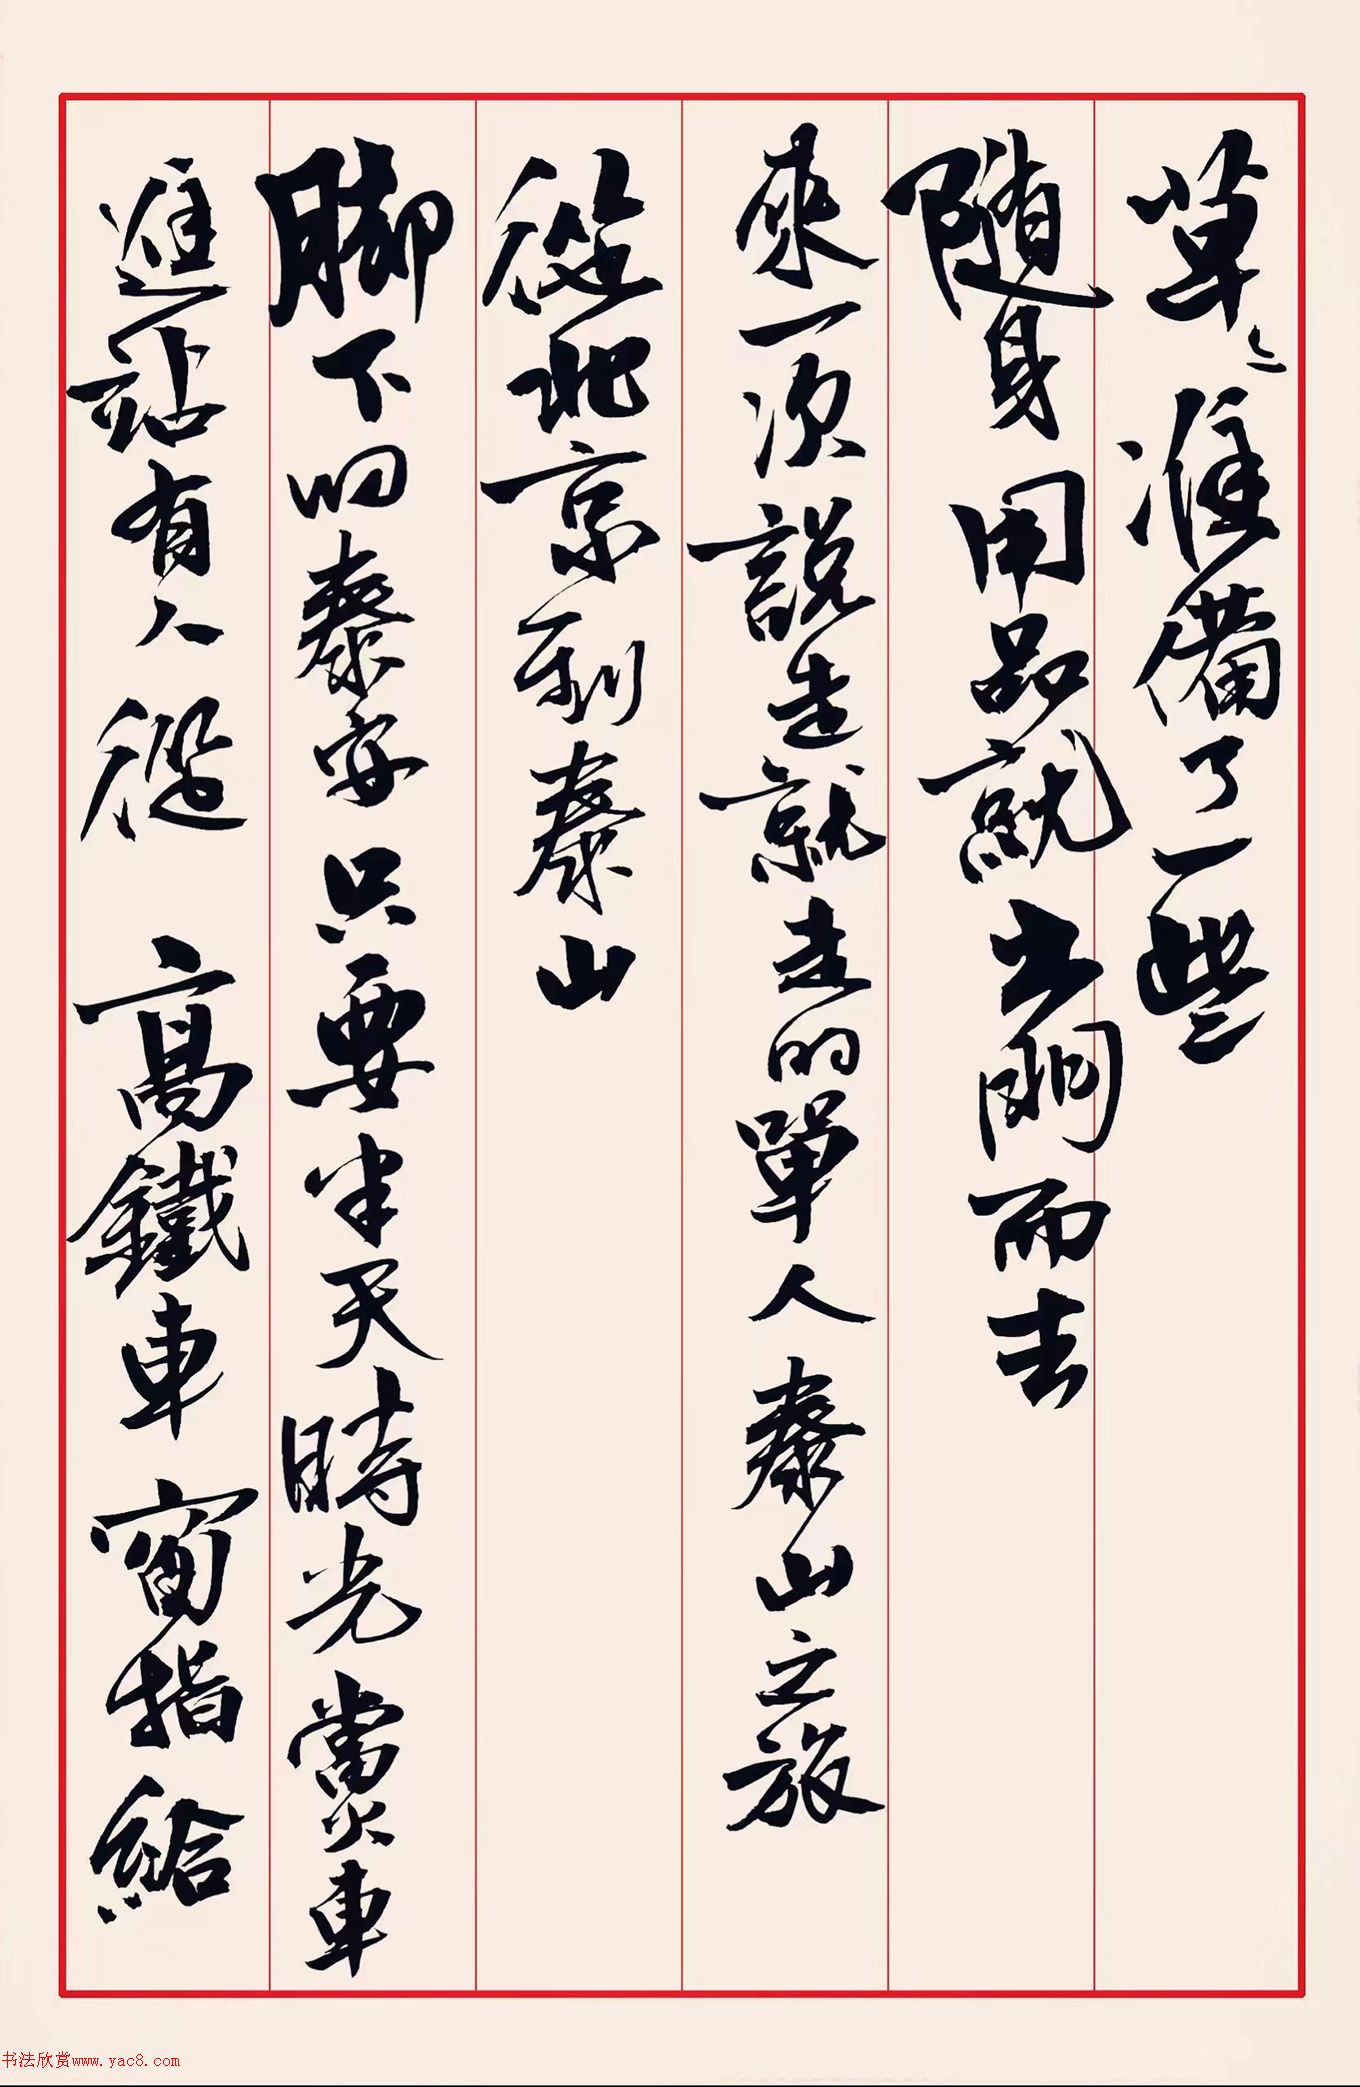 草々準備了一些
随身用品就出門而去
來一次説走就走的單人泰山之旅
從北京到泰山
脚下的泰安只要半天時光當火車
進站有人從高鐵車窗指給
书法欣赏www.yac8.com